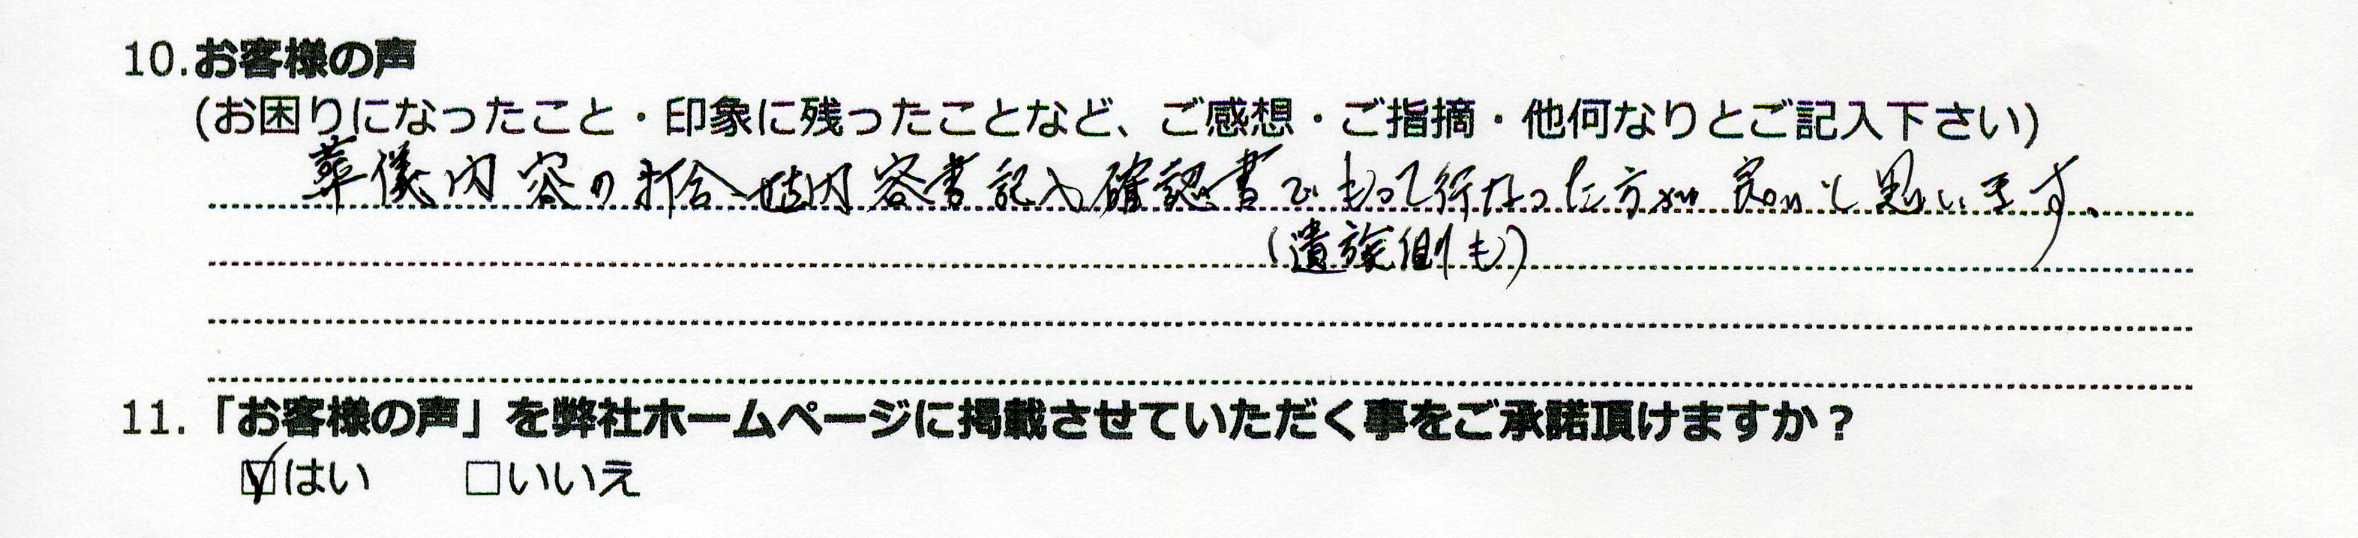 10.お客様の声
(お困りになったこと・印象に残ったことなど、ご感想・ご指摘・他何なりとご記入下さい)
葬儀内容の打合せ内容書記入確認書でもって行なった方が良いと思います、
(遺族側も)
11.「お客様の声」を弊社ホームページに掲載させていただく事をご承諾頂けますか?
☑はい □いいえ